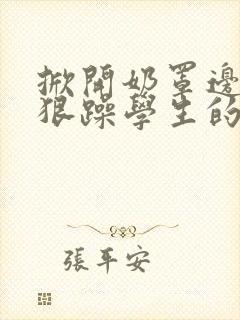 掀開奶罩邊
狠躁學生的
張平安